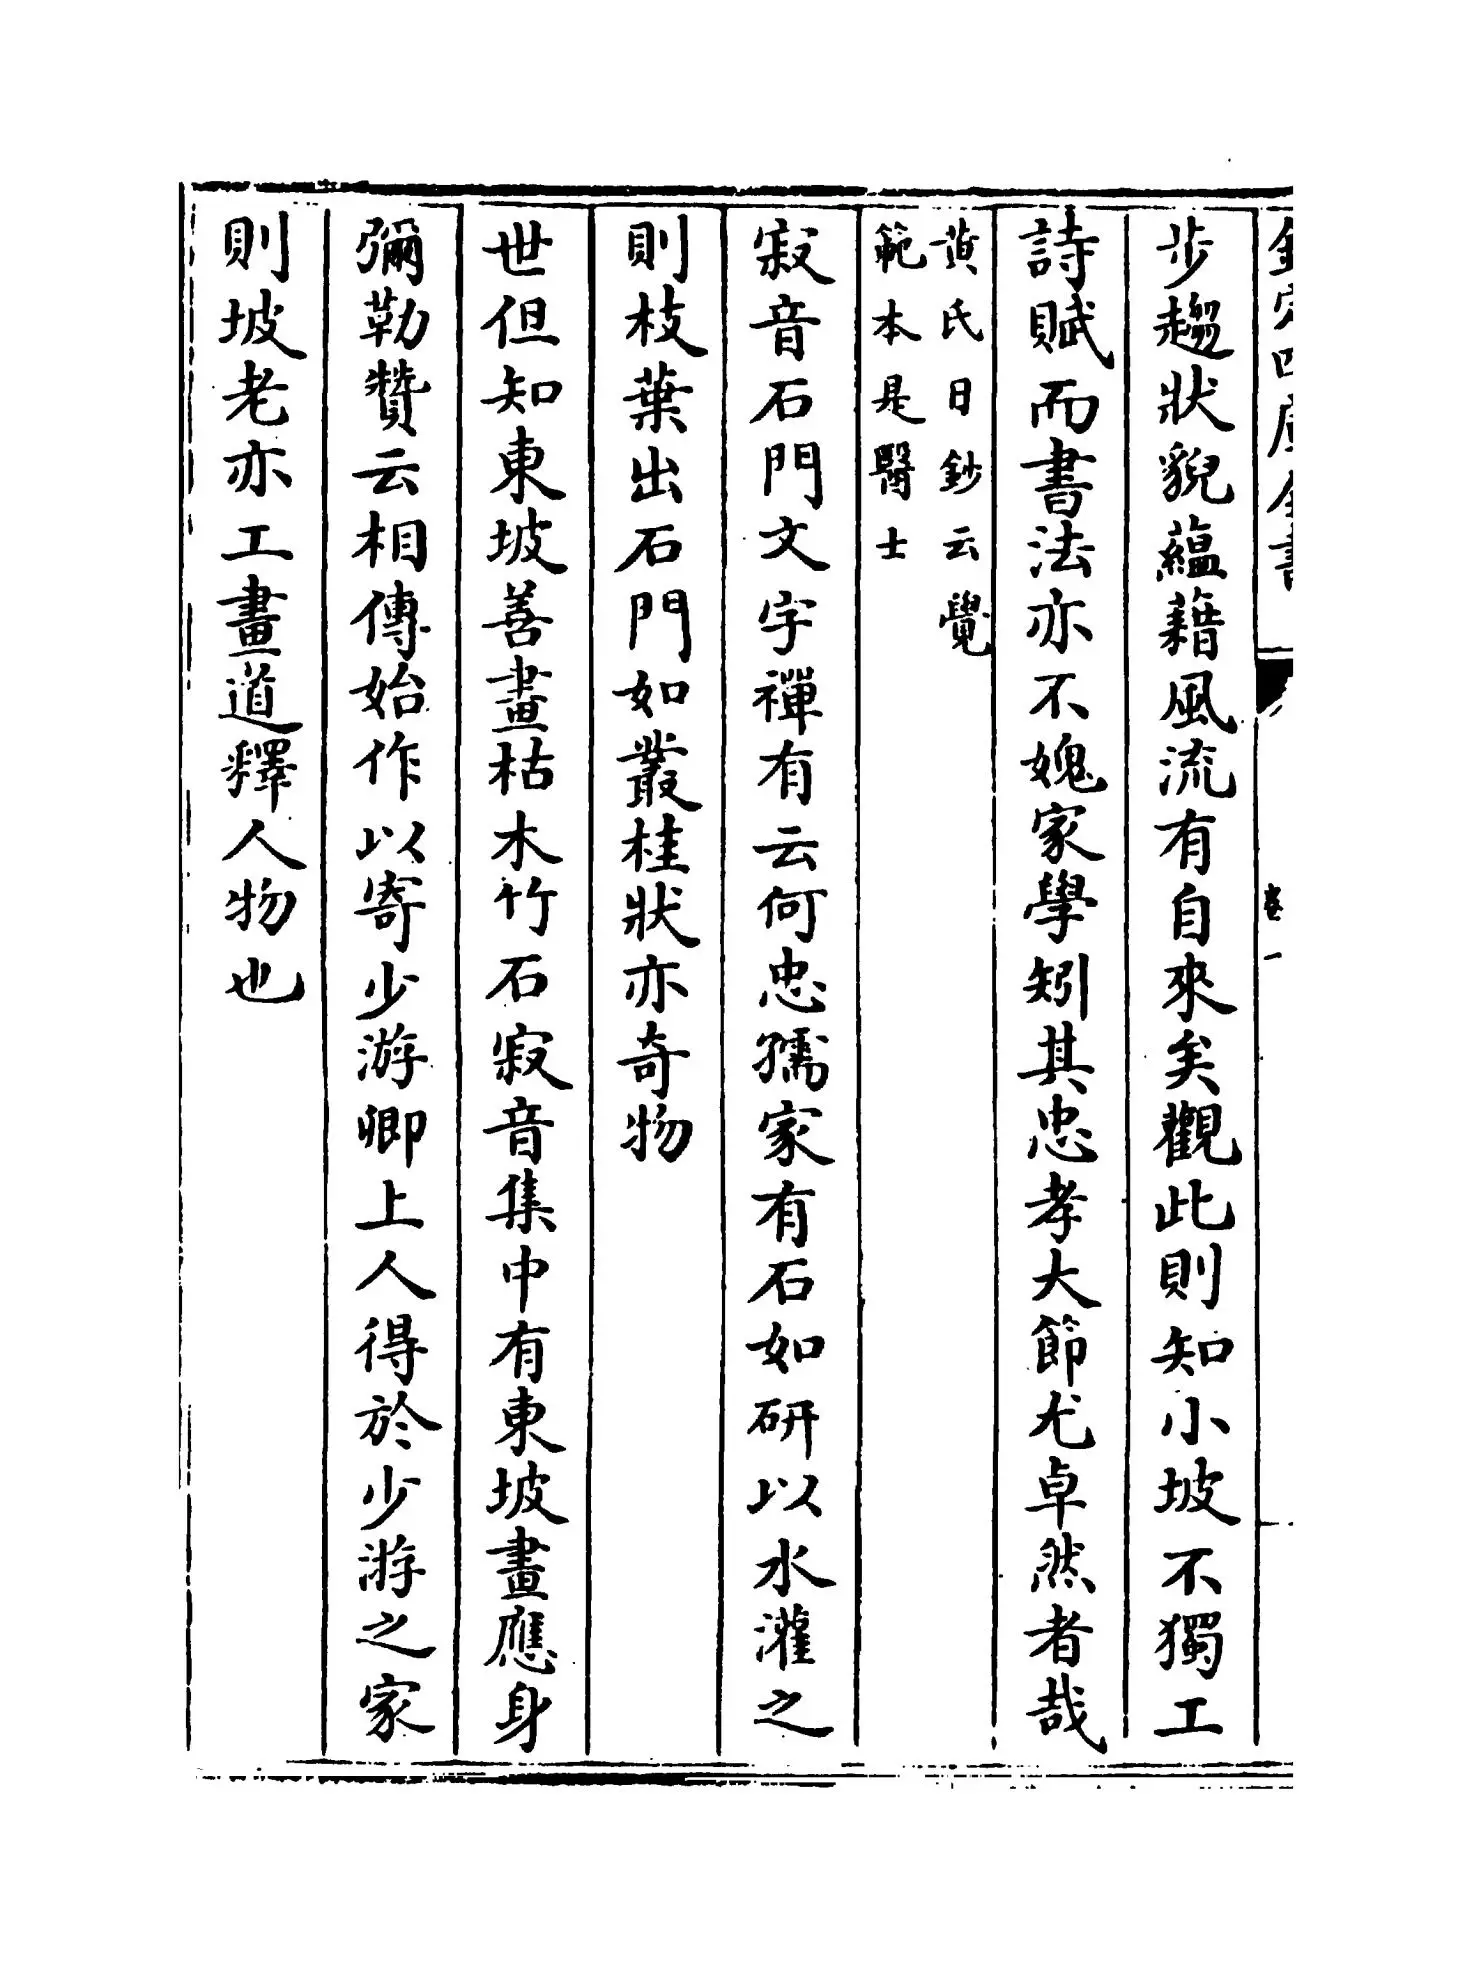 欽定四庫全書
卷一
步趨狀貌蘊藉風流有自來矣觀此則知小坡不獨工
詩賦而書法亦不媿家學矧其忠孝大節尤卓然者哉
黄氏日鈔云覺
範本是醫士
寂音石門文字禪有云何忠孺家有石如研以水灌之
則枝葉出石門如叢桂狀亦奇物
世但知東坡善畫枯木竹石寂音集中有東坡畫應身
彌勒贊云相傳始作以寄少游卿上人得於少游之家
則坡老亦工畫道釋人物也